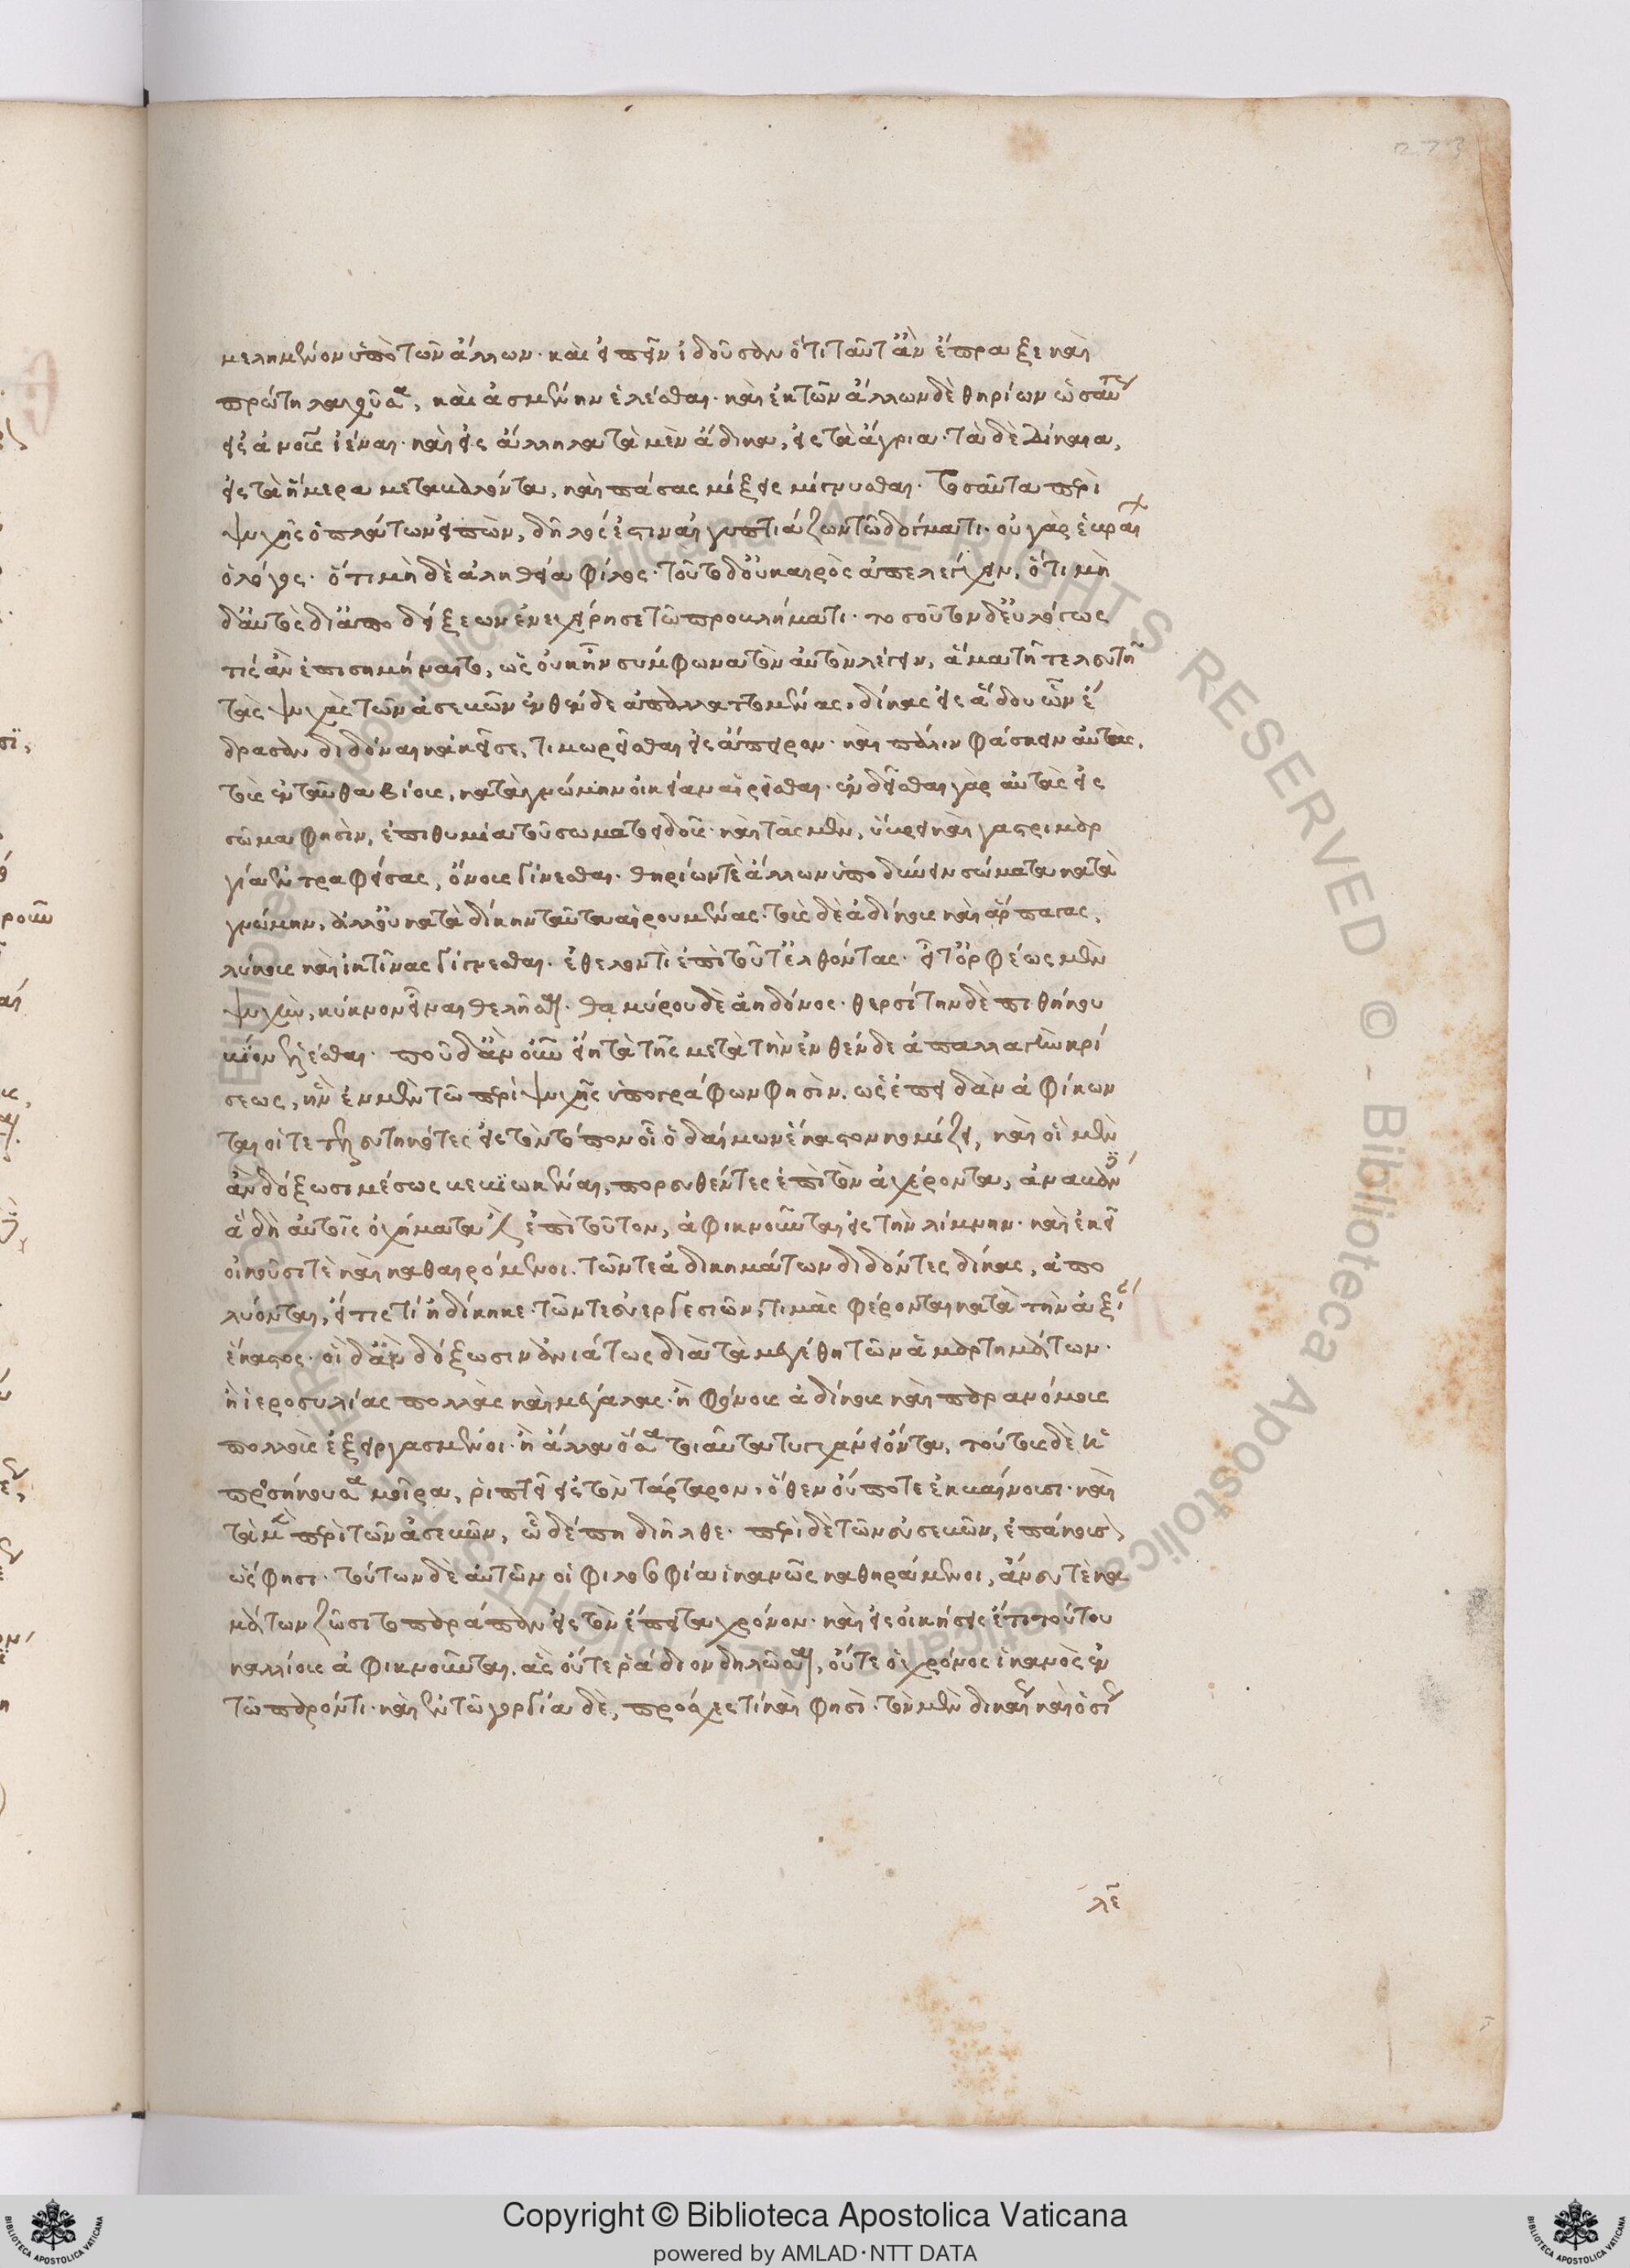 μελημένον ὑπὸ τῶν ἄλλων· καὶ εἰπεῖν ἰδοῦσαν ὅτι ταῦτ' ἂν ἔπραξε καὶ
πρώτη λαχοῦσα, καὶ ἀσμένην ἑλέσθαι· καὶ ἐκ τῶν ἄλλων δὲ θηρίων ὡσαύτως
εἰς ἀνους ἰέναι· καὶ εἰς ἄλληλα τὰ μὲν ἄδικα, εἰς τὰ ἄγρια· τὰ δὲ δίκαια,
εἰς τὰ ἥμερα μεταβάλλοντα, καὶ πάσας μίξεις μίγνυσθαι· τοσαῦτα περὶ
ψυχῆς ὁ πλάτων εἰπὼν, δῆλός ἐστιν αἰγυπτιάζων τῷ δόγματι· οὐ γὰρ ἑβραίων
ὁ λόγος· ὅτι μὴ δὲ ἀληθεία φίλος· τοῦτο δ' οὐ καιρὸς ἀπελέγχειν, ὅτι μὴ
δ' αὐτὸς δι' ἀποδείξεων ἐνεχείρησε τῷ προβλήματι· τοσοῦτον δ' εὐλόγως
τίς ἂν ἐπισημήναιτο, ὡς οὐκ ἦν σύμφωνα τὸν αὐτὸν λέγειν, ἅμα τῇ τελευτῇ
τὰς ψυχὰς τῶν ἀσεβῶν ἐνθένδε ἀπαλλαττομένας, δίκας εἰς ᾅδου ὧν ἔ
δρασαν διδόναι κἀκεῖσε, τιμωρεῖσθαι εἰς ἄπειρον· καὶ πάλιν φάσκειν αὐτὰς,
τοὺς ἐνταῦθα βίους, κατὰ γνώμην οἰκείαν αἱρεῖσθαι· ἐνδεῖσθαι γὰρ αὐτὰς εἰς
σῶμα φησὶν, ἐπιθυμία τοῦ σωματοειδοῦς· καὶ τὰς μὲν, ὕβρει καὶ γαστριμαρ
γία ἐντραφείσας, ὄνους γίνεσθαι· θηρίων τὲ ἄλλων ὑποδύειν σώματα κατὰ
γνώμην, ἀλλ' οὐ κατὰ δίκην ταῦτα αἱρουμένας· τοὺς δὲ ἀδίκους καὶ ἅρπαγας,
λύκους καὶ ἰκτῖνας γίγνεσθαι· ἐθελοντὶ ἐπὶ τοῦτ' ἐλθόντας· εἶτ' ὀρφέως μὲν
ψυχὴν, κύκνον εἶναι θελῆσαι· θαμύρου δὲ ἀηδόνος· θερσίτην δὲ πιθήκου
βίον ἑλέσθαι· ποῦ δ' ἂν οὖν εἴη τὰ τῆς μετὰ τὴν ἐνθένδε ἀπαλλαγὴν κρί
σεως, ἣν ἐν μὲν τῷ περὶ ψυχῆς ὑπογράφων φησὶν. ὡς ἐπειδὰν ἀφίκων
ται οἵ τε τετελευτηκότες εἰς τὸν τόπον οἷ ὁ δαίμων ἕκαστον κομίζει, καὶ οἳ μὲν
ἂν δόξωσι μέσως βεβιωκέναι, πορευθέντες ἐπὶ τὸν ἀχέροντα, ἀναβάντες
ἃ δὴ αὐτοῖς ὀχήματά ἐστιν ἐπὶ τοῦτον, ἀφικνοῦνται εἰς τὴν λίμνην· καὶ ἐκεῖ
οἰκοῦσι τὲ καὶ καθαιρόμενοι. τῶν τε ἀδικημάτων διδόντες δίκας, ἀπο
λύονται, εἴ τις τί ἠδίκηκε· τῶν τε εὐεργεσιῶν, τιμὰς φέρονται κατὰ τὴν ἀξίαν
ἕκαστος· οἳ δ' ἂν δόξωσιν ἀνιάτως διὰ τὰ μεγέθη τῶν ἁμαρτημάτων·
ἢ ἱεροσυλίας πολλὰς καὶ μεγάλας· ἢ φόνους ἀδίκους καὶ παρανόμους
πολλοὺς ἐξειργασμένοι· ἢ ἄλλα ὅσα τοιαῦτα τυγχάνει ὄντα, τούτους δὲ ἡ
προσήκουσα μοῖρα, ῥιπτεῖ εἰς τὸν τάρταρον, ὅθεν οὔποτε ἐκβαίνουσι· καὶ
τὰ μὲν περὶ τῶν ἀσεβῶν, ὧδέ πη διῆλθε· περὶ δὲ τῶν εὐσεβῶν, ἐπάκουσον
ὥς φησι· τούτων δὲ αὐτῶν οἱ φιλοσοφία ἱκανῶς καθηράμενοι, ἄνευ τὲ κα
μάτων ζῶσι τὸ παράπαν εἰς τὸν ἔπειτα χρόνον· καὶ εἰς οἰκήσεις ἔτι τούτου
καλλίους ἀφικνοῦνται. ἃς οὔτε ῥάδιον δηλῶσαι, οὔτε ὁ χρόνος ἱκανὸς ἐν
τῷ παρόντι· καὶ ἐν τῷ γοργία δὲ, πρόσχες τί καὶ φησὶ· τὸν μὲν δίκαιον καὶ ὁσίως
λε
Copyright © Biblioteca Apostolica Vaticana
powered by AMLAD·NTT DATA